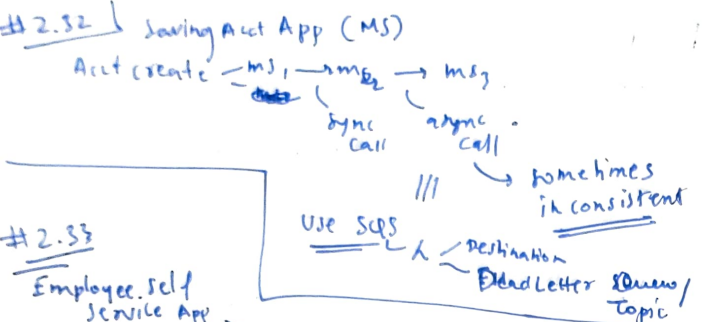 #2.32 Saving Acct App (MS)
Acct create - ms1 → ms2 → ms3
sync call
async call
sometimes inconsistent
Use SQS
λ
Destination
Dead Letter Queue/Topic
#2.33
Employee Self
Service App.